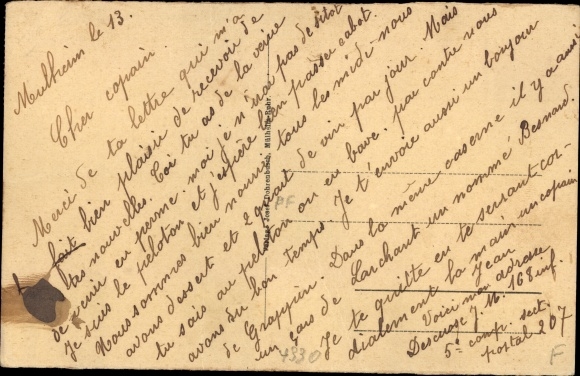 Mulheim le 13.
Cher copain.
Merci de ta lettre qui m'a
fait bien plaisir de recevoir de
tes nouvelles. Toi tu as de la veine
de venir en perme. moi je n'irai pas de sitot
Je suis le peloton et j'espère bien passer cabot.
Nous sommes bien nourris tous les midi nous
avons dessert et 2 quart de vin par jour. Mais
tu sais au peloton on en bave. par contre nous
avons du bon temps. Je t'envoie aussi un bonjour
de Grappin. Dans la même caserne il y a aussi
un gars de Larchant un nommé Besnard.
Je te quitte en te serrant cor-
dialement la main un copain
Jean
Voici mon adresse
Descuose J. M. 168 inf.
5e comp. sect.
postal 207
Mülheim-Ruhr.
PF
4330
F